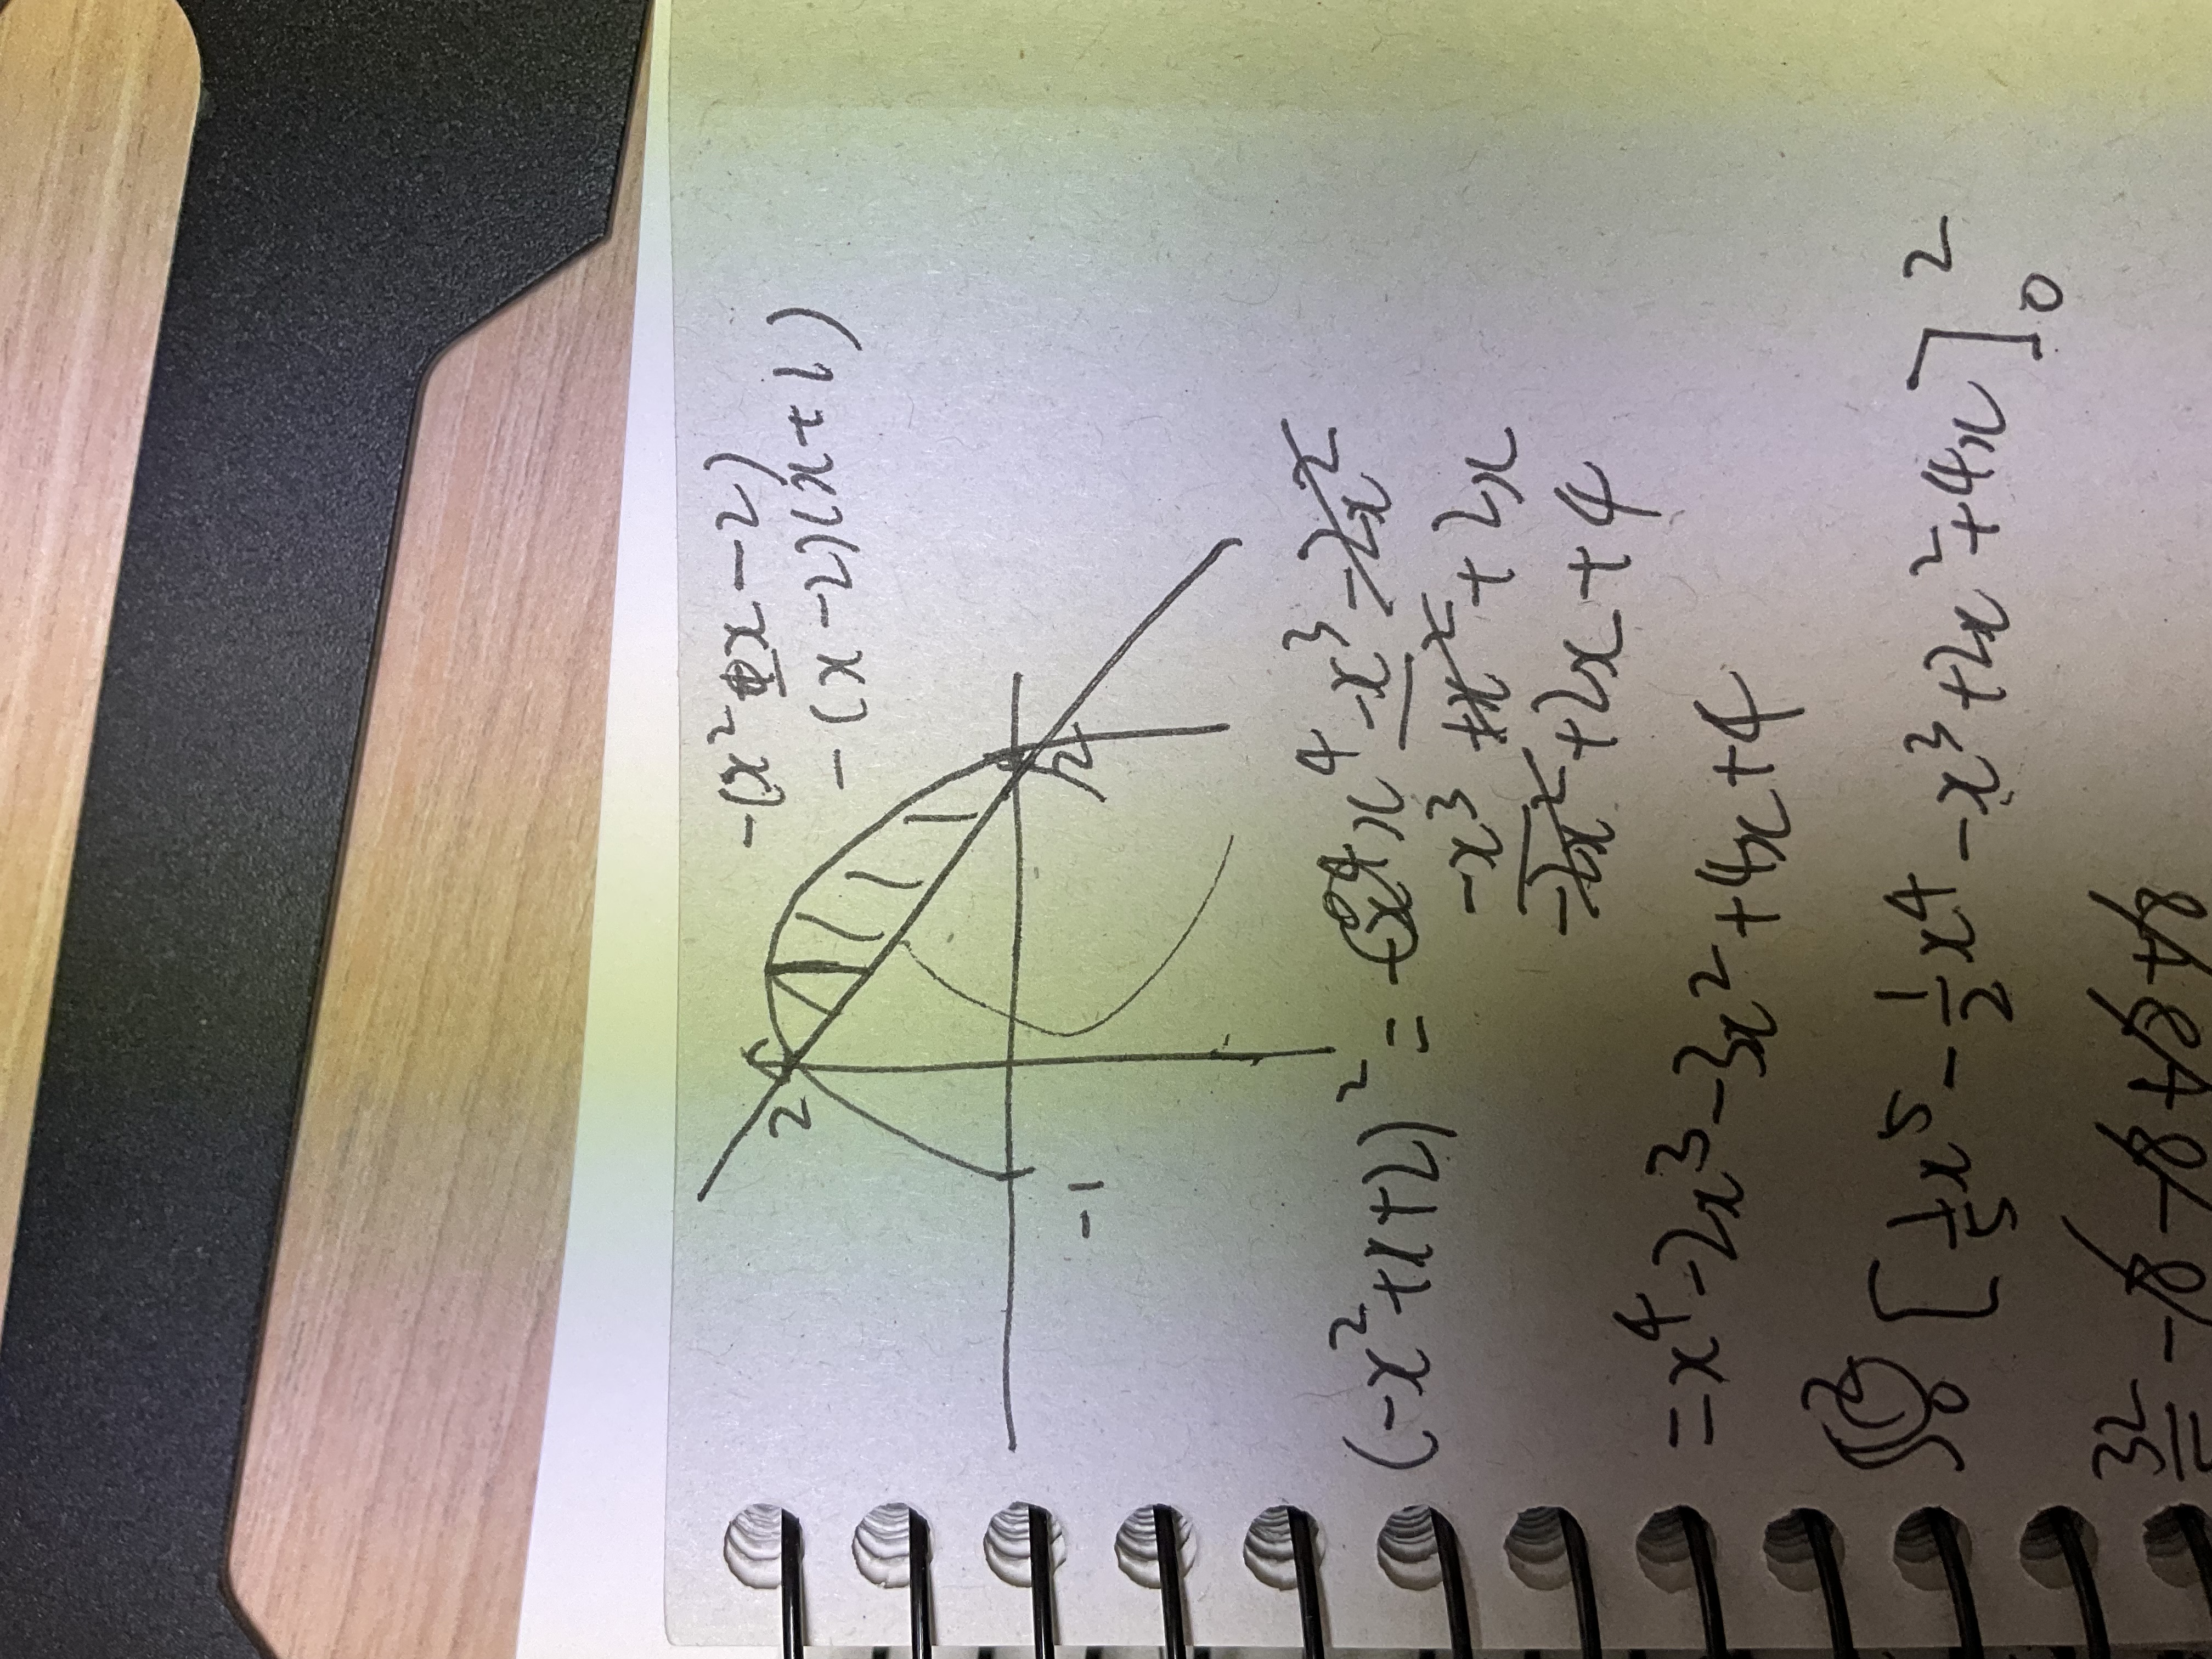 -(x²-x-2)
-(x-2)(x+1)
2
-1
2
(-x²+x+2)² = x⁴-x³-2x²
-x³+x²+2x
-2x²+2x+4
=x⁴-2x³-3x²+4x+4
[1/5x⁵-1/2x⁴-x³+2x²+4x]²₀
32/5-8-8+8+8